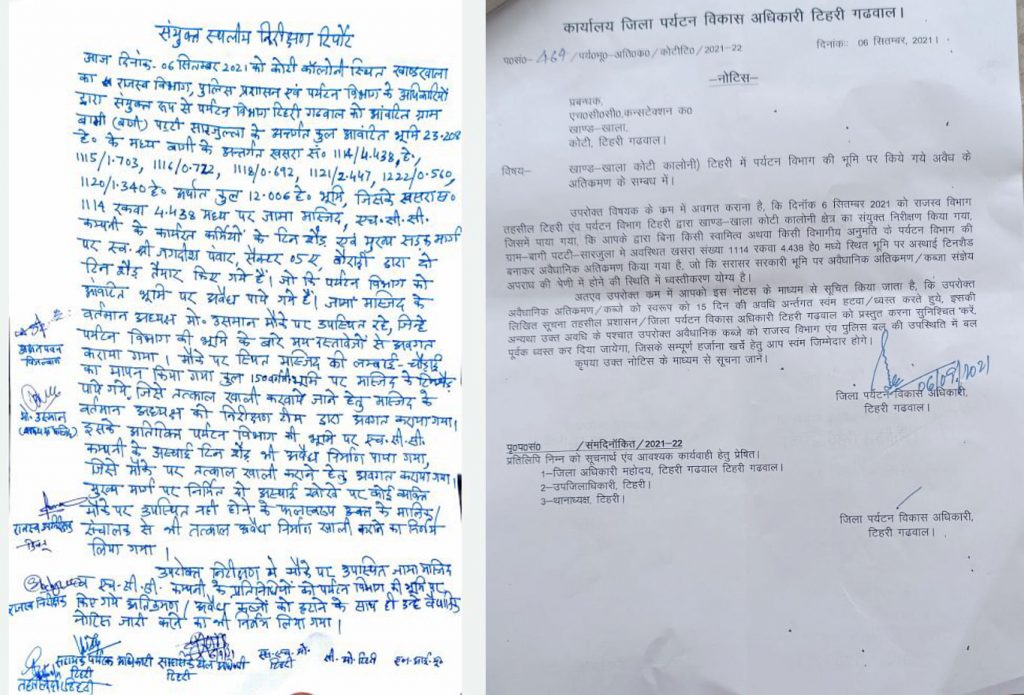 संयुक्त स्थलीय निरीक्षण रिपोर्ट
आज दिनांक 06 सितम्बर 2021 को कोटी कॉलोनी स्थित खाण्डखाला
का राजस्व विभाग, पुलिस प्रशासन एवं पर्यटन विभाग के अधिकारियों
द्वारा संयुक्त रूप से पर्यटन विभाग टिहरी गढवाल को आवंटित ग्राम
बागी (बणी) पट्टी सारजुल्ला के अन्तर्गत कुल आवंटित भूमि 23.208
है० के मध्य बणी के अन्तर्गत खसरा सं० 1114/4.438, है.,
1115/1.703, 1116/0.722, 1118/0.692, 1121/2.447, 1222/0.560,
1120/1.340 है० अर्थात कुल 12.006 है० भूमि, जिसके खसरा सं०
1114 रकवा 4.438 मध्य पर जामा मस्जिद, एच.सी.सी.
कम्पनी के कार्यरत कर्मियों के टिन शैड एवं मुख्य सडक मार्ग
पर स्व. श्री जगदीश पंवार, सैक्टर 05 ए, बौराड़ी द्वारा दो
टिन शैड तैयार किए गये हैं। जो कि पर्यटन विभाग को
आवंटित भूमि पर अवैध पाये गये हैं। जामा मस्जिद के
वर्तमान अध्यक्ष मो. उसमान मौके पर उपस्थित रहे, जिन्हे
पर्यटन विभाग की भूमि के बारे मय दस्तावेजों से अवगत
कराया गया। मौके पर स्थित मस्जिद की लम्बाई-चौड़ाई
का मापन किया गया कुल 150 वर्गमी० भूमि पर मस्जिद के टिनशैड
पाये गये, जिसे तत्काल खाली करवाये जाने हेतु मस्जिद के
वर्तमान अध्यक्ष को निरीक्षण टीम द्वारा अवगत कराया गया।
इसके अतिरिक्त पर्यटन विभाग की भूमि पर एच.सी.सी.
कम्पनी के अस्थाई टिन शैड भी अवैध निर्माण पाया गया,
जिसे मौके पर तत्काल खाली कराने हेतु अवगत कराया गया।
मुख्य मार्ग पर निर्मित दो अस्थाई खोखे पर कोई व्यक्ति
मौके पर उपस्थित नहीं होने के फलस्वरूप उक्त के मालिक/
संचालक से भी तत्काल अवैध निर्माण खाली कराने का निर्णय
लिया गया।
उपरोक्त निरीक्षण मे मौके पर उपस्थित जामा मस्जिद
व एच.सी.सी. कम्पनी के प्रतिनिधियों को पर्यटन विभाग की भूमि पर
किए गये अतिक्रमण/अवैध कब्जों को हटाने के साथ ही उन्हे
नोटिस जारी करने का भी निर्णय लिया गया।
मो. उसमान
राजस्व उपनिरीक्षक
राजस्व निरीक्षक
पर्यटक अधिकारी
टिहरी
टिहरी
तहसीलदार टिहरी
एस.एच.ओ.
टिहरी
सी.ओ टिहरी
कार्यालय जिला पर्यटन विकास अधिकारी टिहरी गढवाल।
प०सं०- 469 /पर्य०भू०-अति०क०/कोटीटि०/2021-22 दिनांकः 06 सितम्बर, 2021।
—नोटिस—
प्रबन्धक,
एच०सी०सी०,कन्सटेक्शन क०
खाण्ड-खाला,
कोटी, टिहरी गढवाल।
विषय— खाण्ड-खाला कोटी कालोनी) टिहरी में पर्यटन विभाग की भूमि पर किये गये अवैध के
अतिकमण के सम्बध में।
उपरोक्त विषयक के कम में अवगत कराना है, कि दिनांक 6 सितम्बर 2021 को राजस्व विभाग
तहसील टिहरी एंव पर्यटन विभाग टिहरी द्वारा खाण्ड-खाला कोटी कालोनी क्षेत्र का संयुक्त निरीक्षण किया गया,
जिसमें पाया गया, कि आपके द्वारा बिना किसी स्वामित्व अथवा किसी विभागीय अनुमति के पर्यटन विभाग की
ग्राम-बागी पटटी-सारजुला मे अवस्थित खसरा संख्या 1114 रकवा 4.438 हे० मध्ये स्थित भूमि पर अस्थाई टिनशैड
बनाकर अवैधानिक अतिकमण किया गया है, जो कि सरासर सरकारी भूमि पर अवैधानिक अतिकमण/कब्जा संज्ञेय
अपराध की श्रेणी में होने की स्थिति में ध्वस्तीकरण योग्य है।
अतएव उपरोक्त कम में आपको इस नोटस के माध्यम से सूचित किया जाता है, कि उपरोक्त
अवैधानिक अतिकमण/कब्जे को स्वरूप को 15 दिन की अवधि अर्न्तगत स्वंम हटवा/ध्वस्त करते हुये, इसकी
लिखित सूचना तहसील प्रशासन/जिला पर्यटन विकास अधिकारी टिहरी गढवाल को प्रस्तुत करना सुनिश्चित करें,
अन्यथा उक्त अवधि के पश्चात उपरोक्त अवैधानिक कब्जे को राजस्व विभाग एंव पुलिस बल की उपस्थिति में बल
पूर्वक ध्वस्त कर दिया जायेगा, जिसके सम्पूर्ण हर्जाना खर्चे हेतु आप स्वंम जिम्मेदार होगे।
कृपया उक्त नोटिस के माध्यम से सूचना जानें।
06/09/2021
जिला पर्यटन विकास अधिकारी,
टिहरी गढवाल।
पृ०प०सं० /संमदिनॉकित/2021-22
प्रतिलिपि निम्न को सूचनार्थ एंव आवश्यक कार्यवाही हेतु प्रेषित।
1-जिला अधिकारी महोदय, टिहरी गढवाल टिहरी गढवाल।
2-उपजिलाधिकारी, टिहरी।
3-थानाध्यक्ष, टिहरी।
जिला पर्यटन विकास अधिकारी,
टिहरी गढवाल।